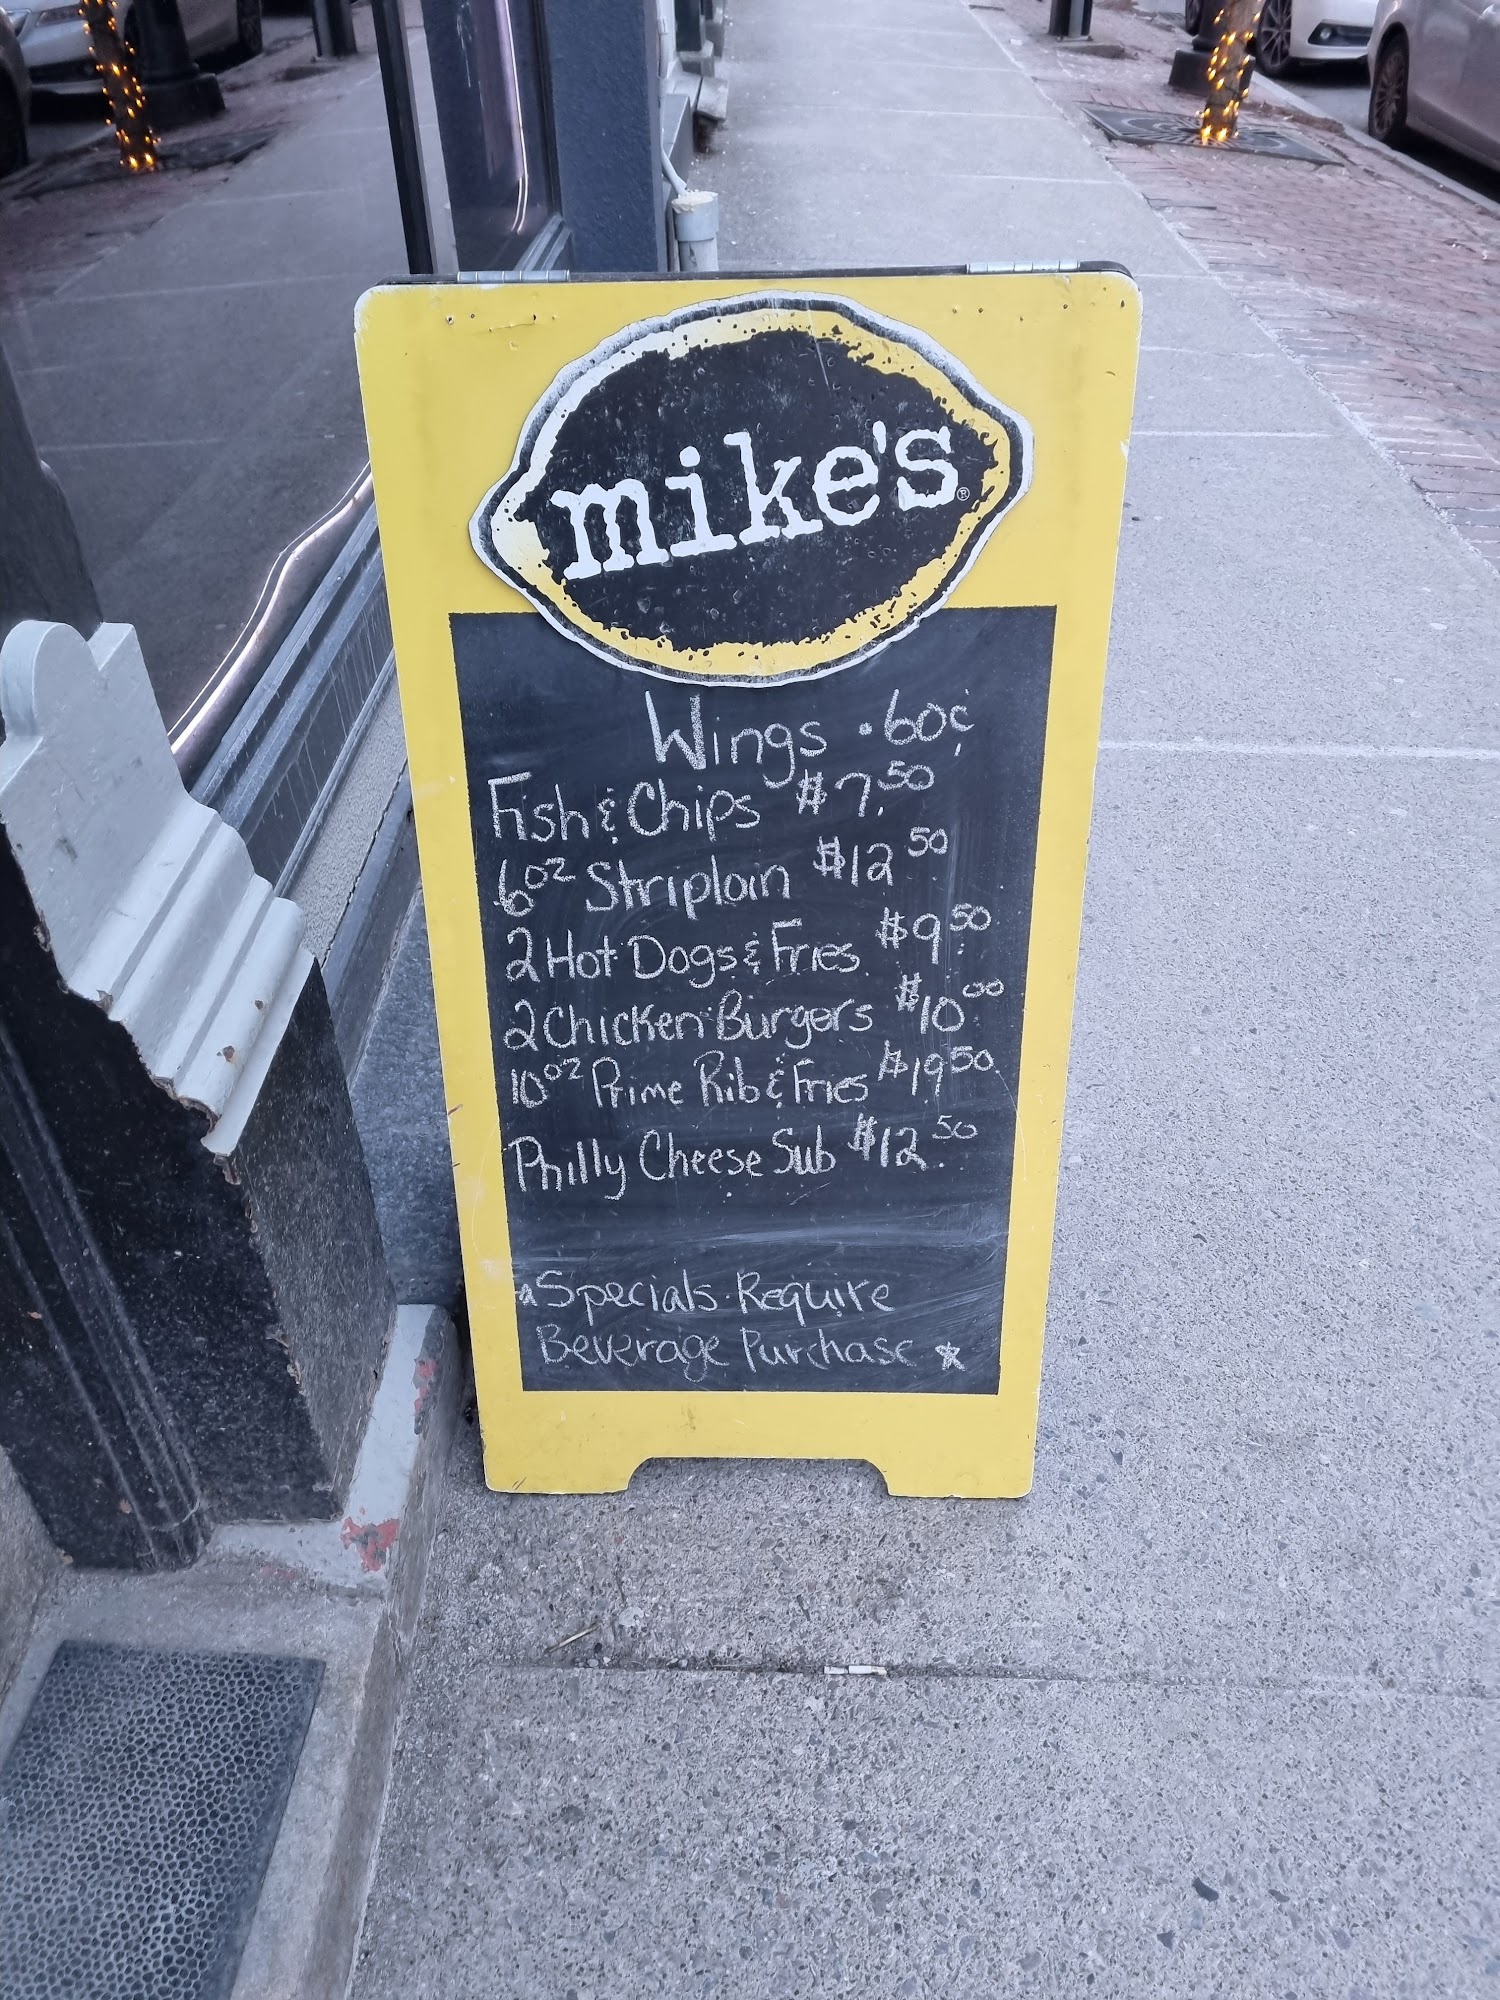 mike's®
Wings .60¢
Fish & Chips $7.50
6oz Striploin $12 50
2 Hot Dogs & Fries $9.50
2 Chicken Burgers $10 00
10oz Prime Rib & Fries $19.50
Philly Cheese Sub $12.50
*Specials Require
Beverage Purchase *